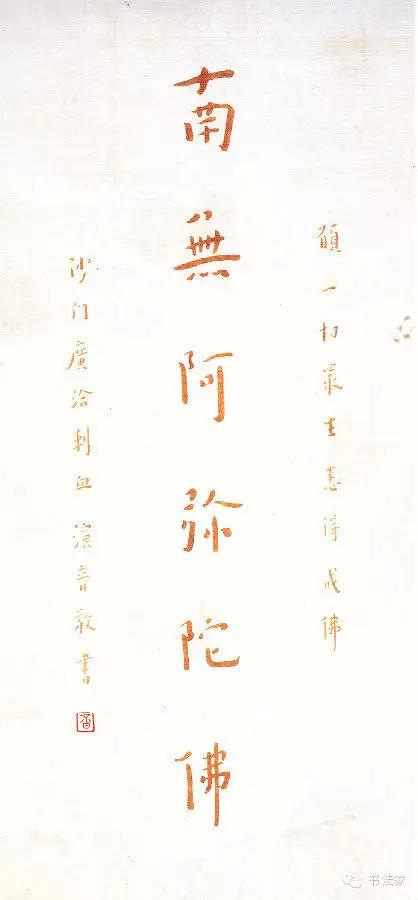 願一切眾生悉得成佛
南無阿弥陀佛
沙门廣洽刺血 演音敬書
书法家